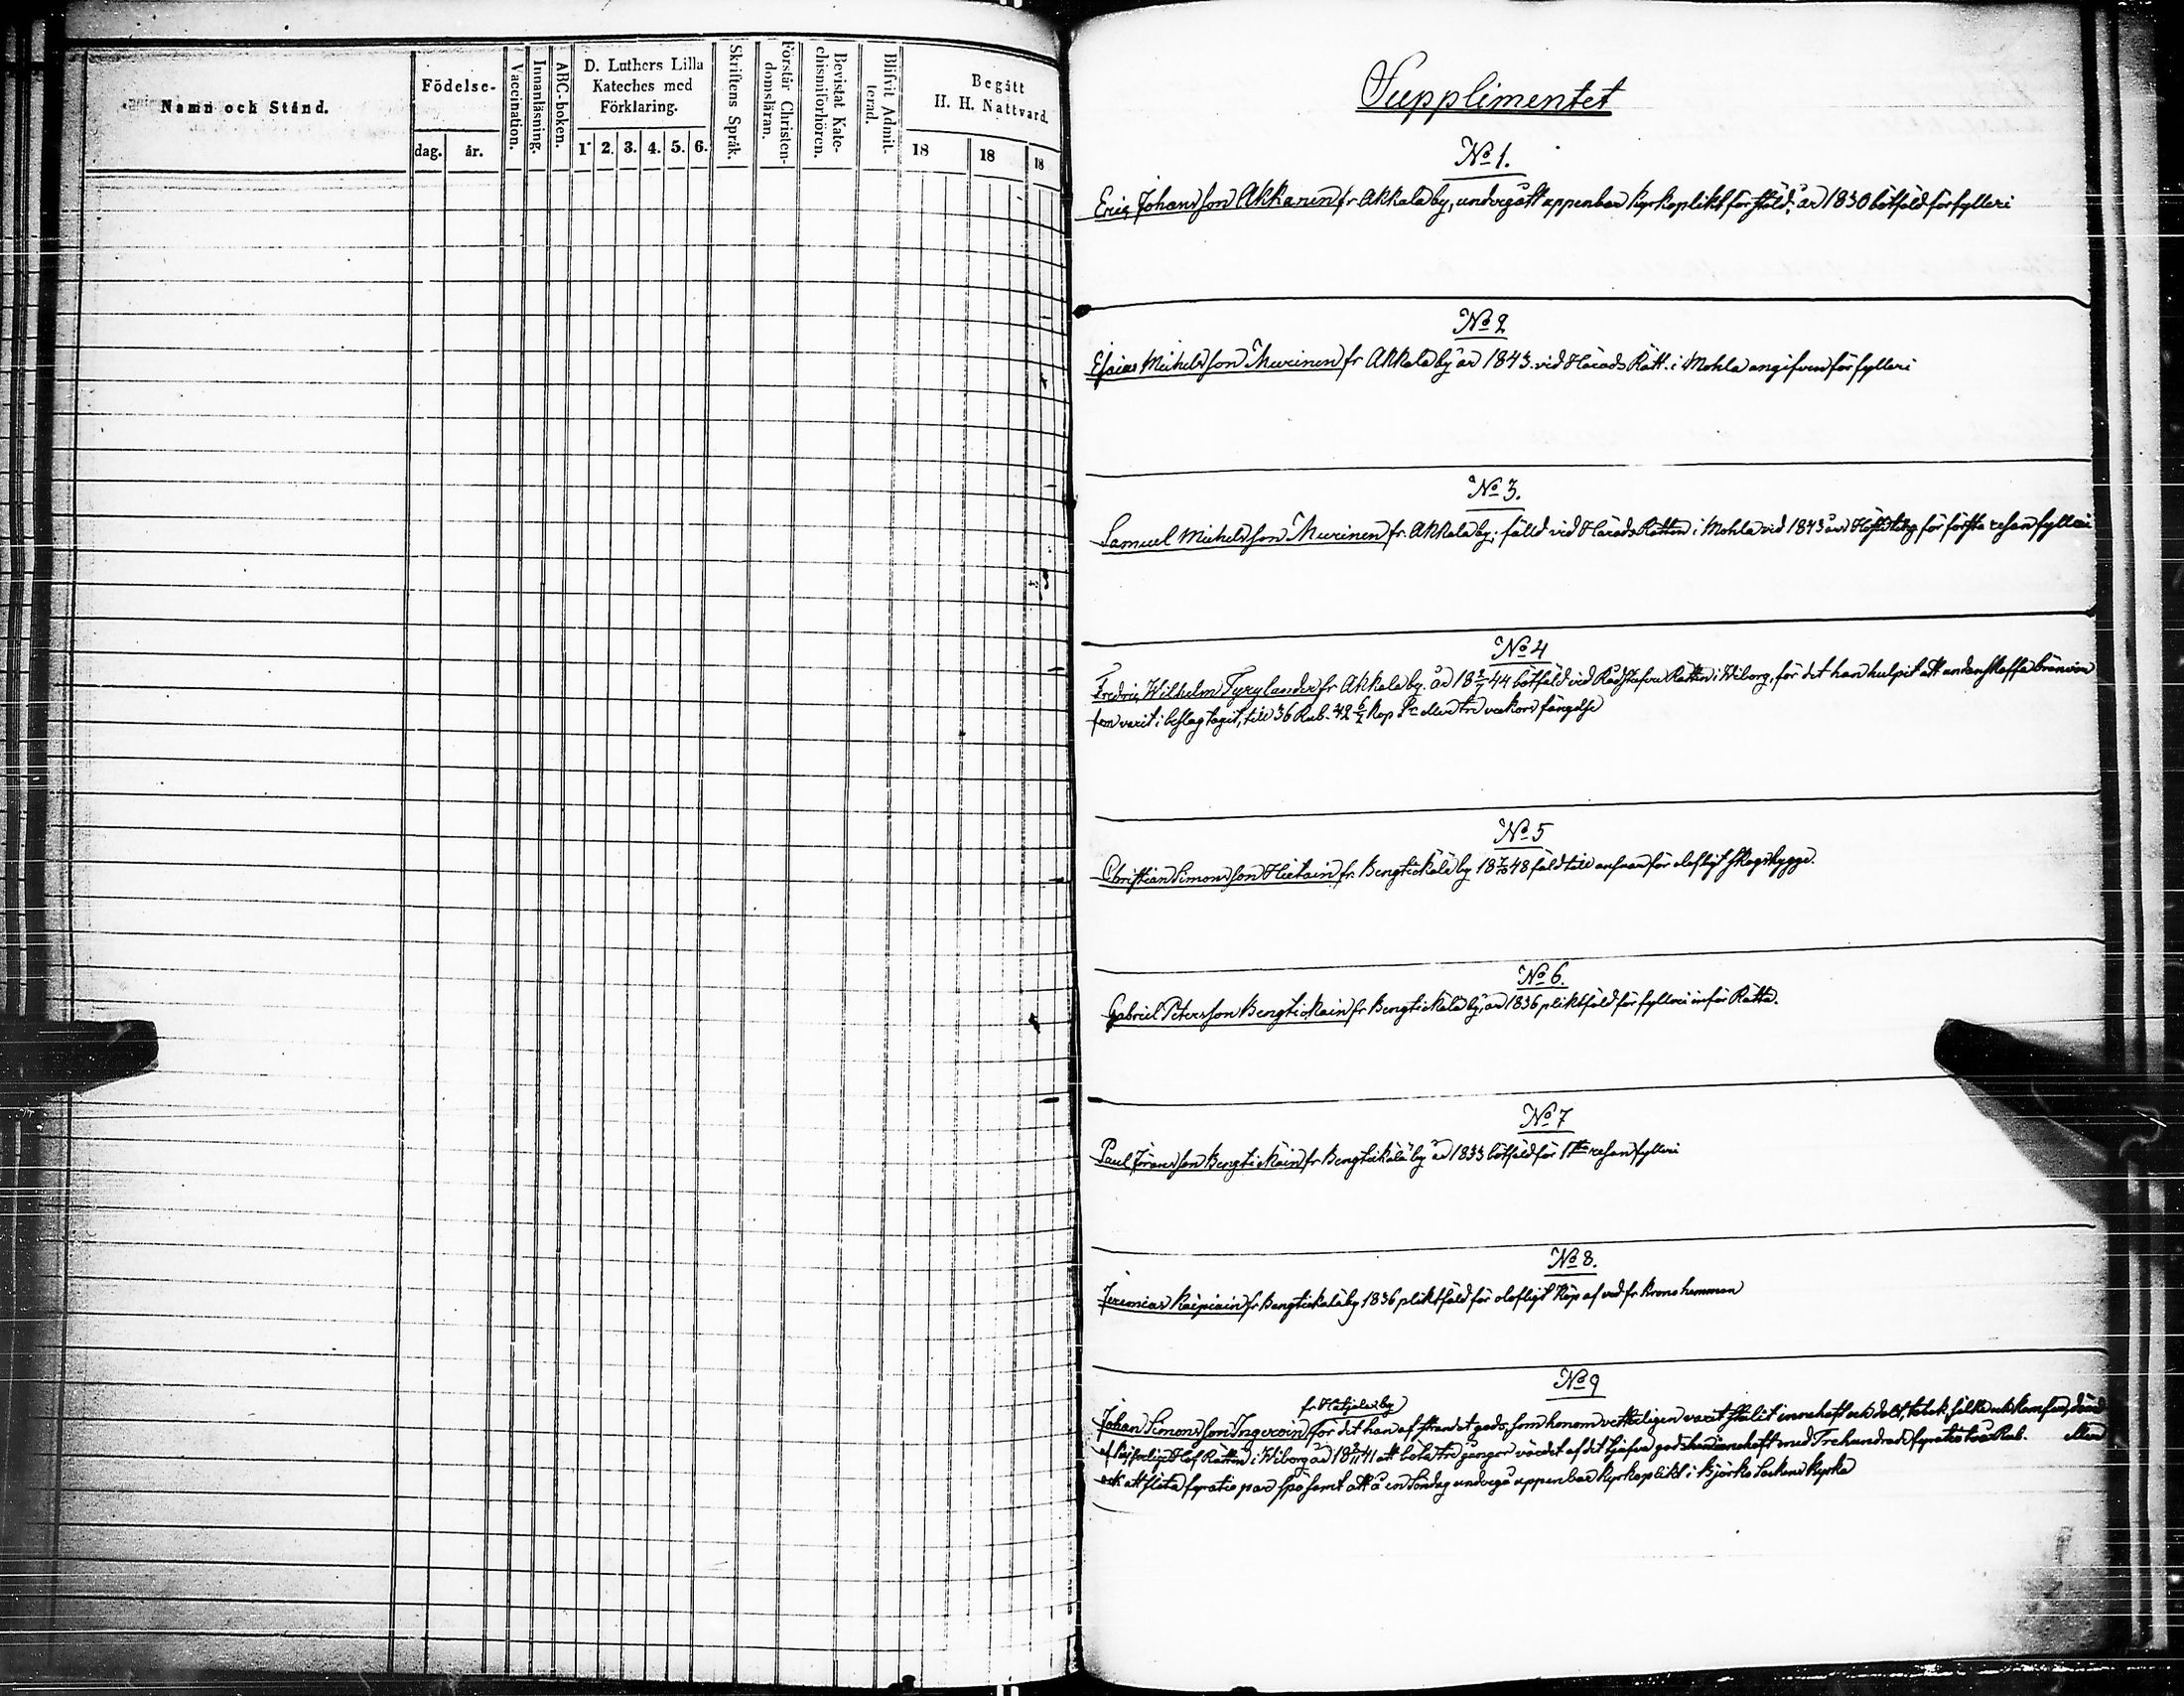 Namn och Stånd.
Födelse-
dag.
år.
Vaccination.
Innanläsning.
ABC-boken.
D. Luthers Lilla
Kateches med
Förklaring.
1. 2. 3. 4. 5. 6.
Skriftens Språk.
Förstår Christen-
domsläran.
Bevistat Kate-
chismiförhören.
Blifvit Admit-
terad.
Begått
H. H. Nattvard.
18
18
18
Supplimentet
No 1.
Eric Johansson Akkanen fr Akkala by, undergått uppenbar kyrkoplikt för stöld; år 1830 bötfäld för fylleri
No 2
Esaias Michelsson Muurinen fr Akkala by år 1843 vid Härads Rätt. i Mohla angifven för fylleri
No 3.
Samuel Michelsson Muurinen fr. Akkala by; fälld vid Härads Rätten i Mohla vid 1843 års Hösteting för första resan fylleri
No 4
Fredric Wilhelm Tyrylander fr Akkala by. år 18 44 bötfäld vid Rådstufvu Rätten i Wiborg, för det han hulpit att undanskaffa bränvin
som varit i beslag tagit, till 36 Rub. 42 6/7 Kop Sr eller tre veckors fängelse
No 5
Christian Simonsson Hietain fr. Bengtickälä by 18 48 fäld till ansvar för olofligt skogshygge.
No 6.
Gabriel Petersson Bengtickain fr Bengtickälä by, år 1836 pliktfäld för fylleri inför Rätta.
No 7
Paul Jöransson Bengtickäin fr Bengtickälä by år 1833 bötfäld för 1sta resan fylleri
No 8.
Jeremias Kaipiain fr Bengtickälä by 1836 pliktfäld för olofligt köp af ved fr Kronohemman
No 9
fr Hatjala by
Johan Simonsson Ingeroin för det han af strandat gods, som honom vetterligen varit stulit innehaft och dolt,
af Kejserliga Hof Rätten i Wiborg år 18 41 att böta tre gånger värdet af det tjufva gods med Trehundrade fyratio två Rub. eller
och att slita fyratio par spö samt att å en Söndag undergå uppenbar kyrkoplikt i Björkö Sockens kyrka